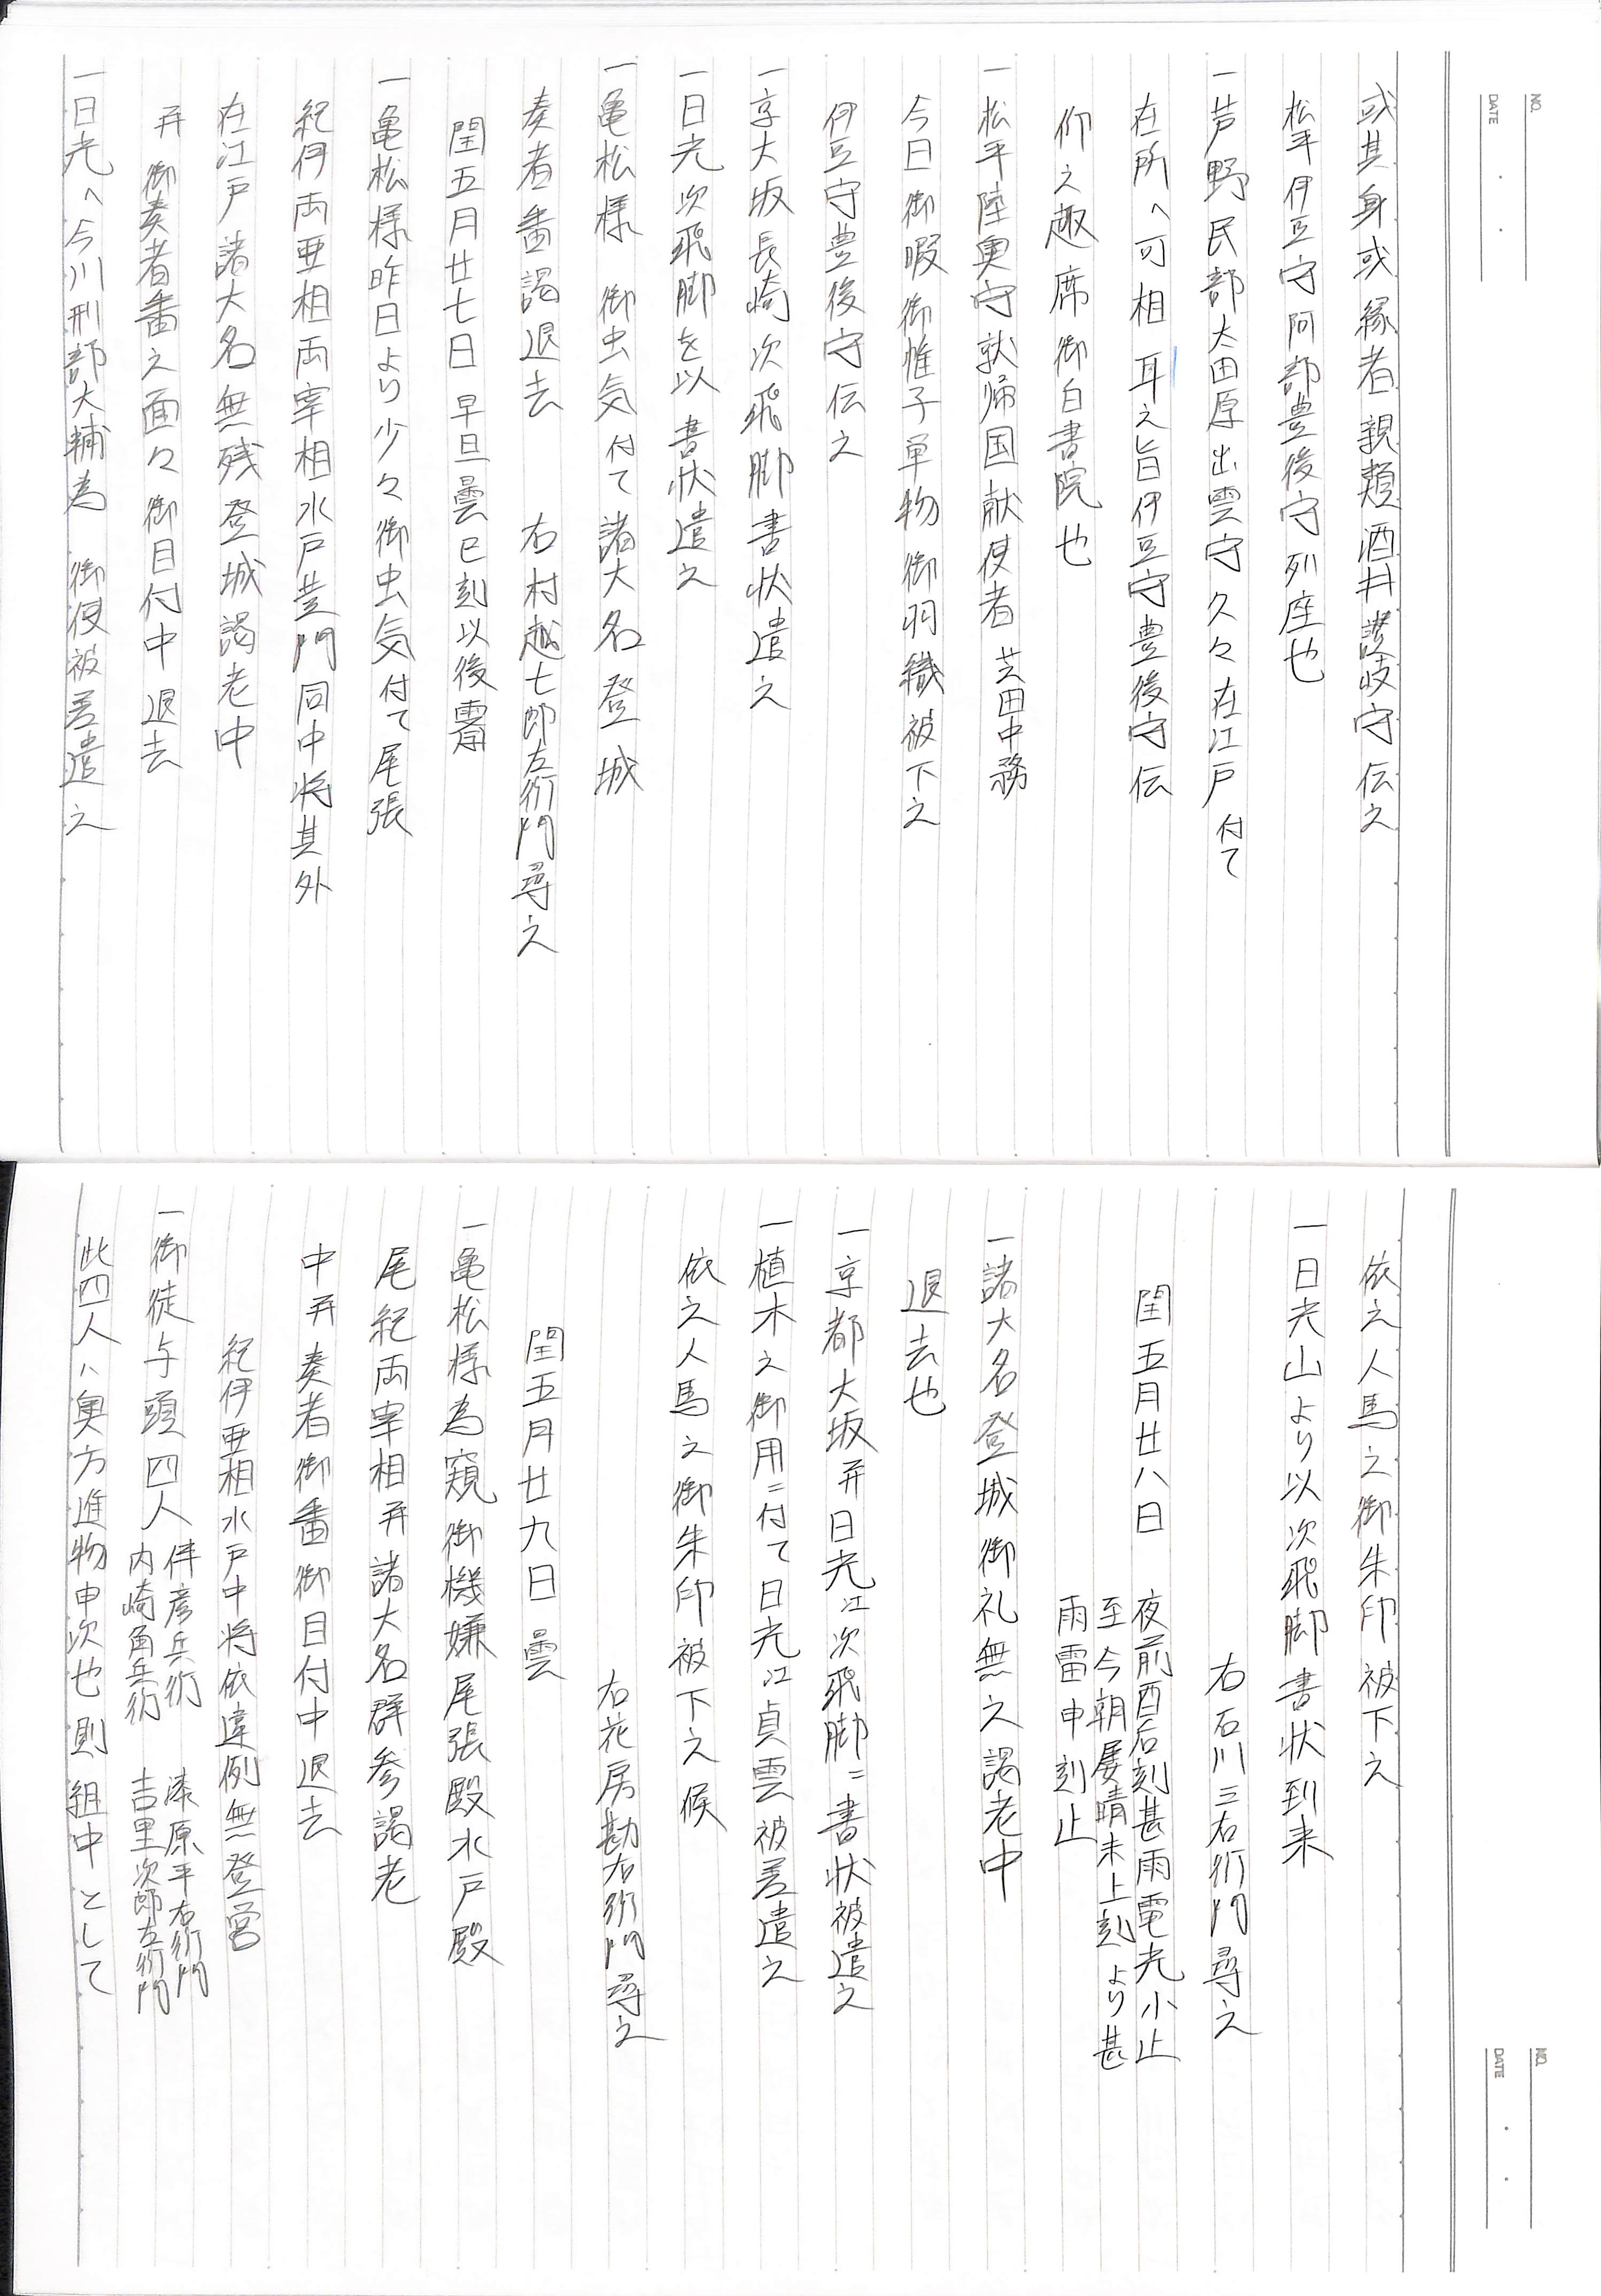 NO.
DATE
或其身或縁者親類酒井讃岐守伝之
松平伊豆守阿部豊後守列座也
一芦野民部大田原出雲守久々在江戸付て
在所へ可相 耳之旨伊豆守豊後守伝
仰之趣席御白書院也
一松平陸奥守就帰国献使者 芝田中務
今日御暇御帷子単物御羽織被下之
伊豆守豊後守伝之
一京大坂長崎次飛脚書状遣之
一日光次飛脚を以書状遣之
一亀松様 御虫気付て諸大名登城
奏者番謁退去 右村越七郎左衛門尋之
閏五月廿七日 早旦曇巳刻以後霽
一亀松様昨日より少々御虫気付て尾張
紀伊両亜相両宰相水戸黄門同中将其外
在江戸諸大名無残登城謁老中
并御奏者番之面々御目付中退去
一日光へ今川刑部大輔為 御使被差遣之
NO.
DATE
依之人馬之御朱印被下之
一日光山より以次飛脚書状到来
右石川三右衛門尋之
閏五月廿八日 夜前酉后刻甚雨電光小止
至今朝屡晴未上刻より甚
雨雷申刻止
一諸大名登城御礼無之謁老中
退去也
一京都大坂并日光江次飛脚ニ書状被遣之
一植木之御用ニ付て日光江貞雲被差遣之
依之人馬之御朱印被下之候
右花房勘右衛門尋之
閏五月廿九日 曇
一亀松様為窺御機嫌尾張殿水戸殿
尾紀両宰相并諸大名群参謁老
中并奏者御番御目付中退去
紀伊亜相水戸中将依違例無登営
一御徒与頭四人 伴彦兵衛 漆原平右衛門
内崎角兵衛 吉里次郎左衛門
此四人ハ奥方進物申次也則組中として